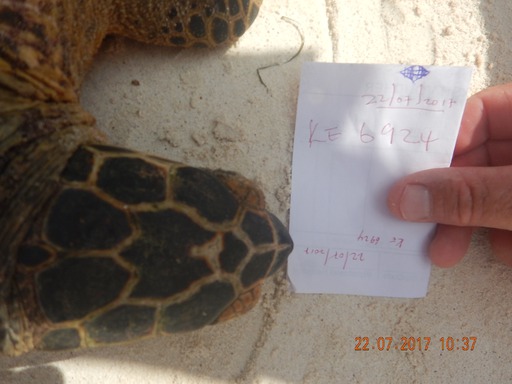 22/07/2017
KE 6924
KE 6924
22/07/2017
22.07.2017 10:37